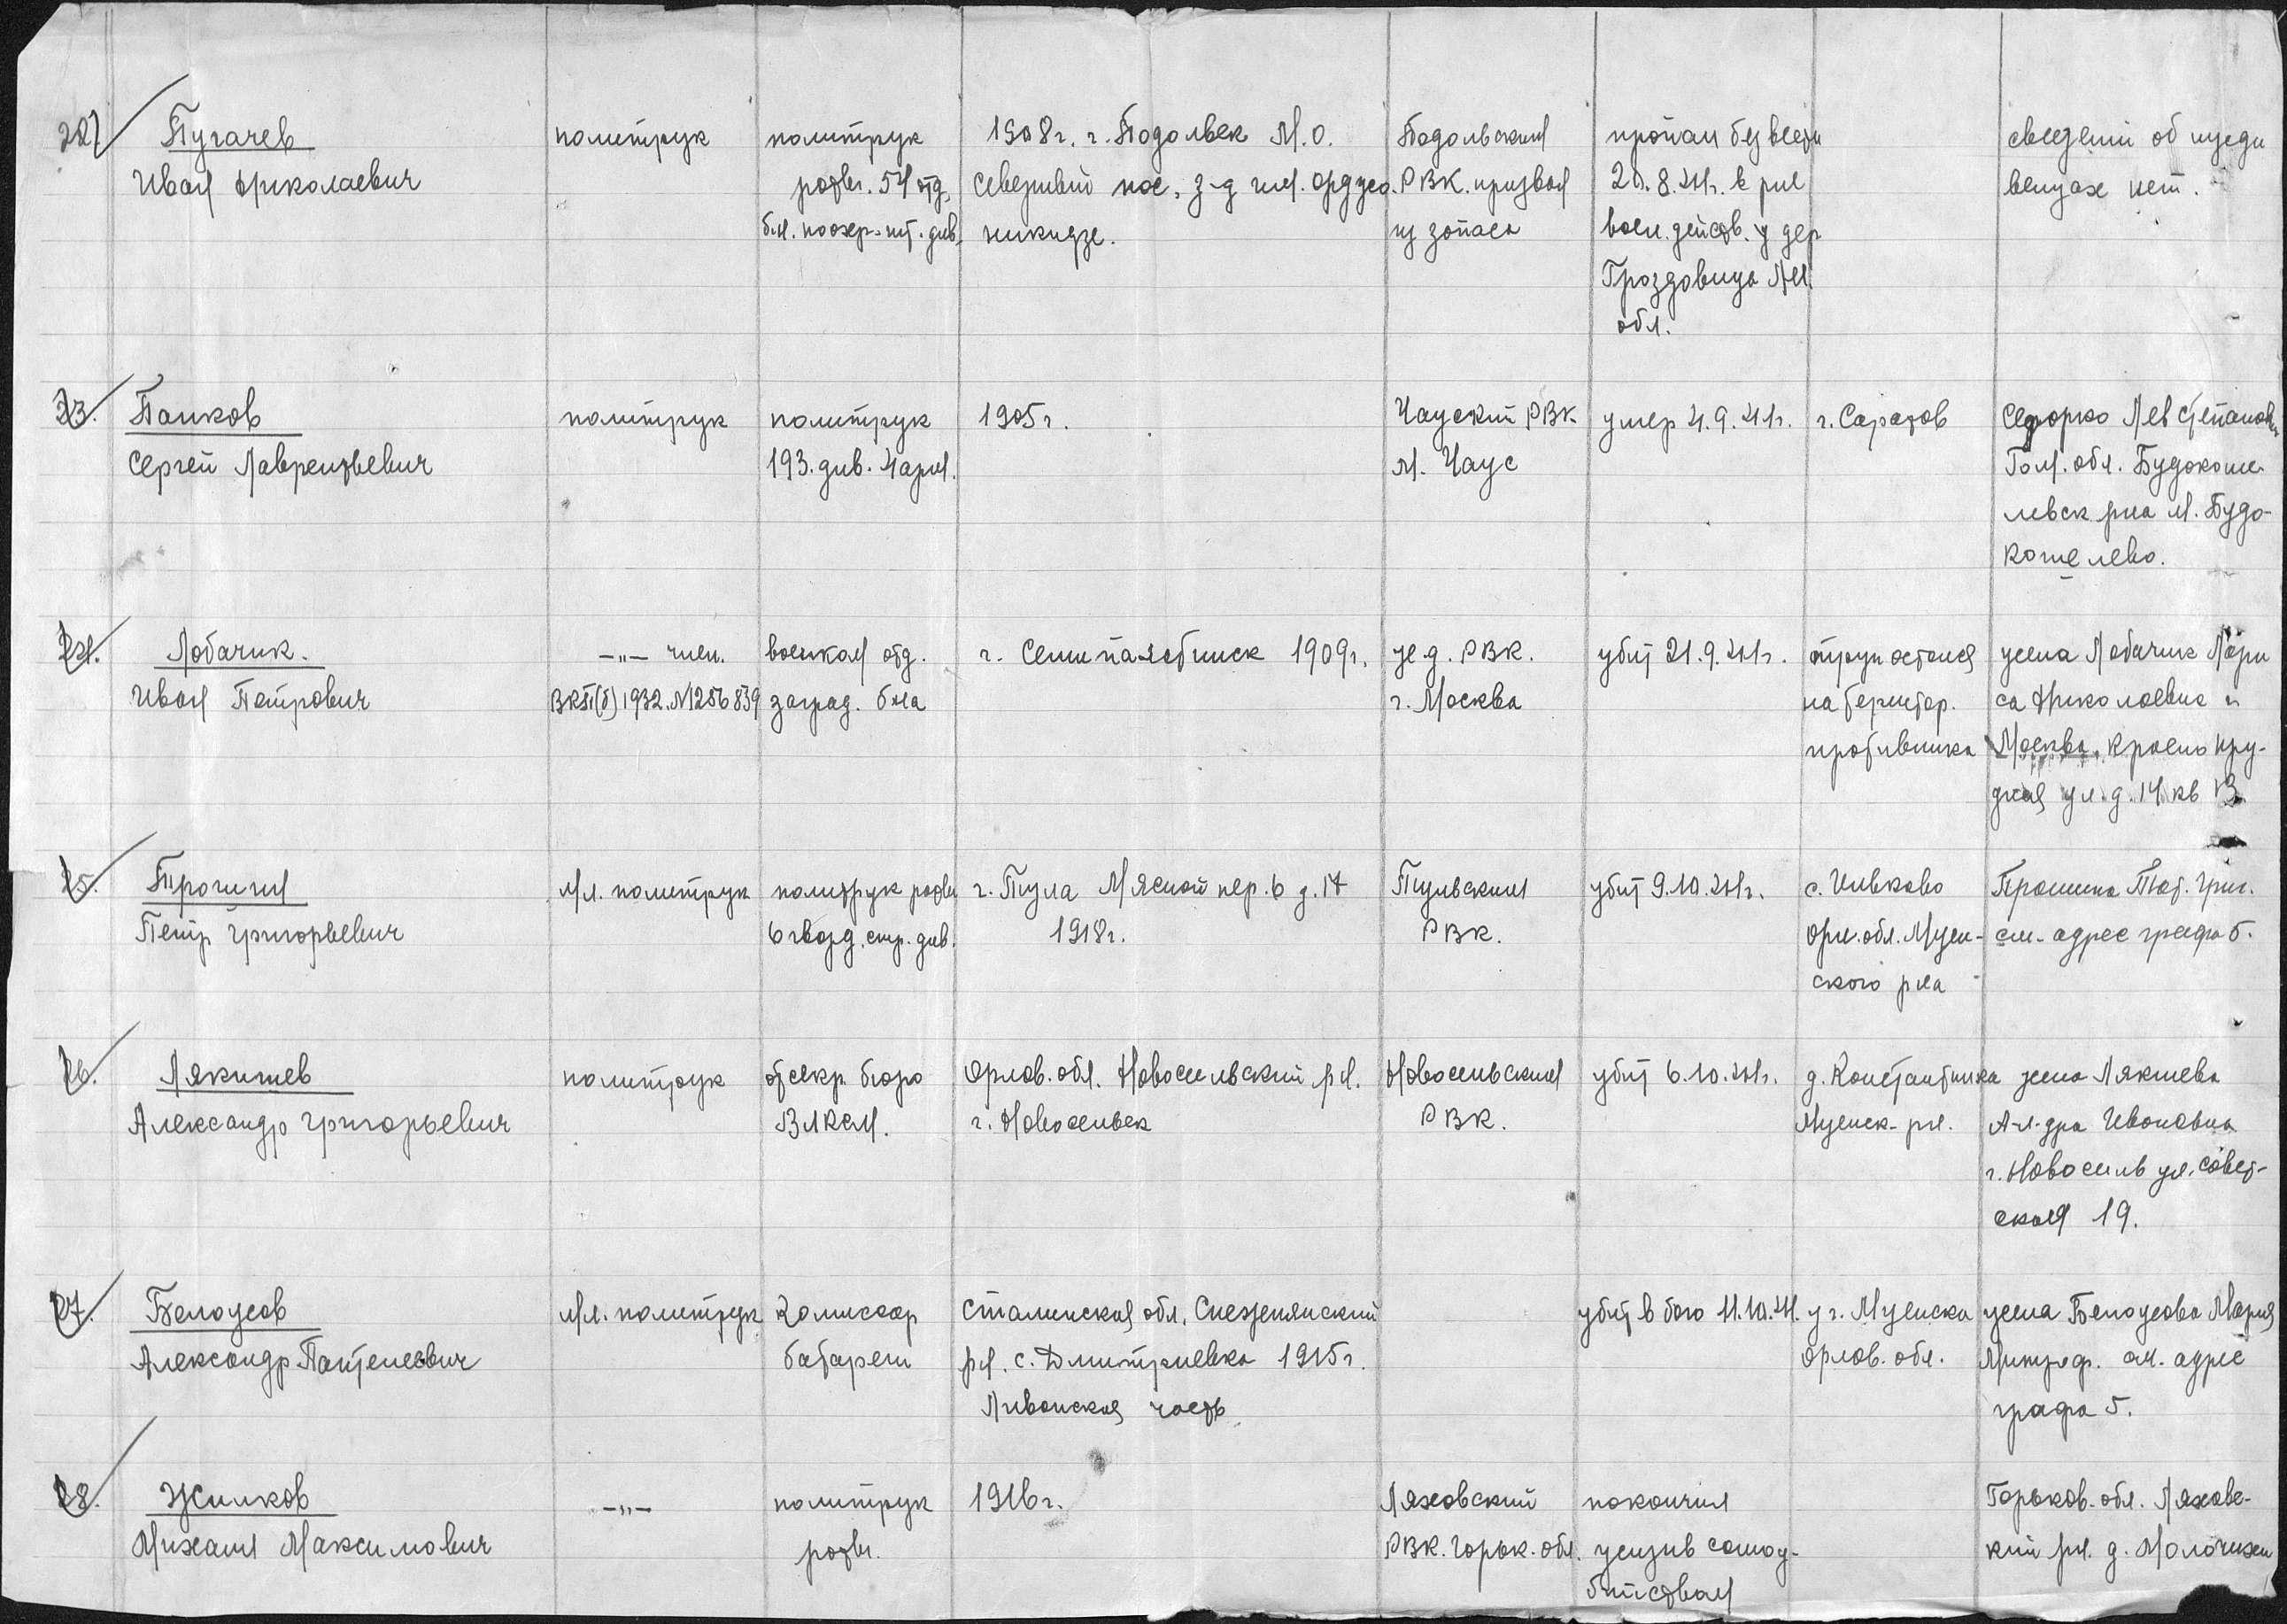 22/ Пугачев политрук политрук 1908г. г. Подольск М.О. Подольским пропал без вести сведений об ижди
Иван Николаевич роты. 54 отд. Северный пос. з-д им. Орджо. РВК. призван 20.8.41г. в р-не венцах нет.
никидзе. из запаса воен. действ. у дер
Гроздовица
обл.
23. Панков политрук политрук 1905г. Чауский РВК. умер 4.9.41г. г. Саратов Лев Степанов
Сергей Лаврентьевич 193. див. 4 арм. м. Чаус Гом. обл. Будокоше-
левск р-на м. Будо-
кошелево.
24. Лобачик. -"- член. военком отд. г. Семипалатинск 1909г. РВК. убит 21.9.41г. труп остался жена Лобачик Лари
Иван Петрович ВКП(б) 1932. №1256839 заград. б-на г. Москва на территор. са Николаевна г.
противника Москва. Красно пру-
дная ул. д. 14 кв
25. Трошин мл. политрук политрук роты г. Тула Мясной пер. 6 д. 17 Тульским убит 9.10.41г. с. Ивково Трошина Тат. Григ.
Петр Григорьевич 6 гвард. стр. див. 1918г. РВК. Орл. обл. Мцен- см. адрес графа 5.
ского р-на
26. Лякишев политрук от секр. бюро Орлов. обл. Новосильский р-н. Новосильским убит 6.10.41г. д. Константиновка жена Лякишева
Александр Григорьевич ВЛКСМ. г. Новосильск РВК. Мценск. р-н. Ал-дра Ивановна
г. Новосиль ул. Совет-
ская 19.
27. Белоусов мл. политрук Комиссар Сталинская обл. Снежнянский убит в бою 11.10.41. у г. Мценска жена Белоусова Мария
Александр Пантелеевич батареи р-н. с. Дмитриевка 1915г. Орлов. обл. см. адрес
Ливанская часть графа 5.
28. Жилков -"- политрук 1916г. Ляховский покончил Горьков. обл. Ляховс-
Михаил Максимович роты. РВК. Горьк. обл. жизнь самоу- кий р-н. д.
бийством